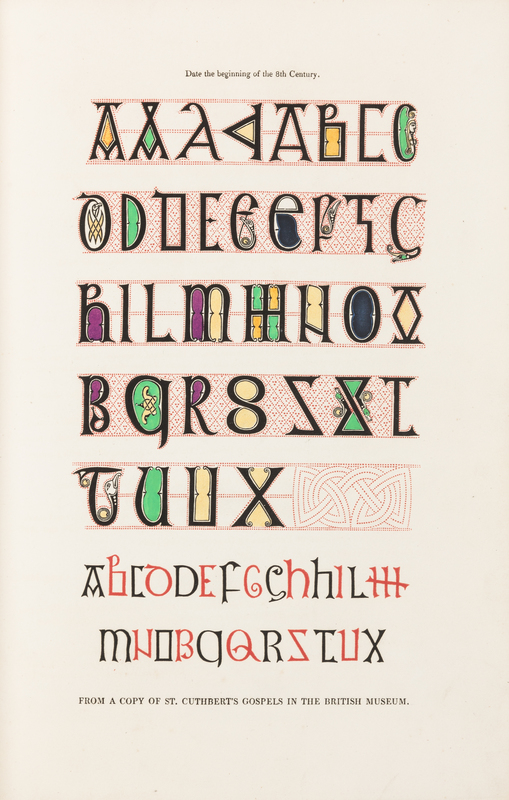 Date the beginning of the 8th Century.
AAAAABCC
DDDEEEFGG
HILMMNOO
PQRSSXT
TUUX
ABCDDEFGGHHILM
MNOPQQRSTUX
FROM A COPY OF ST. CUTHBERT'S GOSPELS IN THE BRITISH MUSEUM.